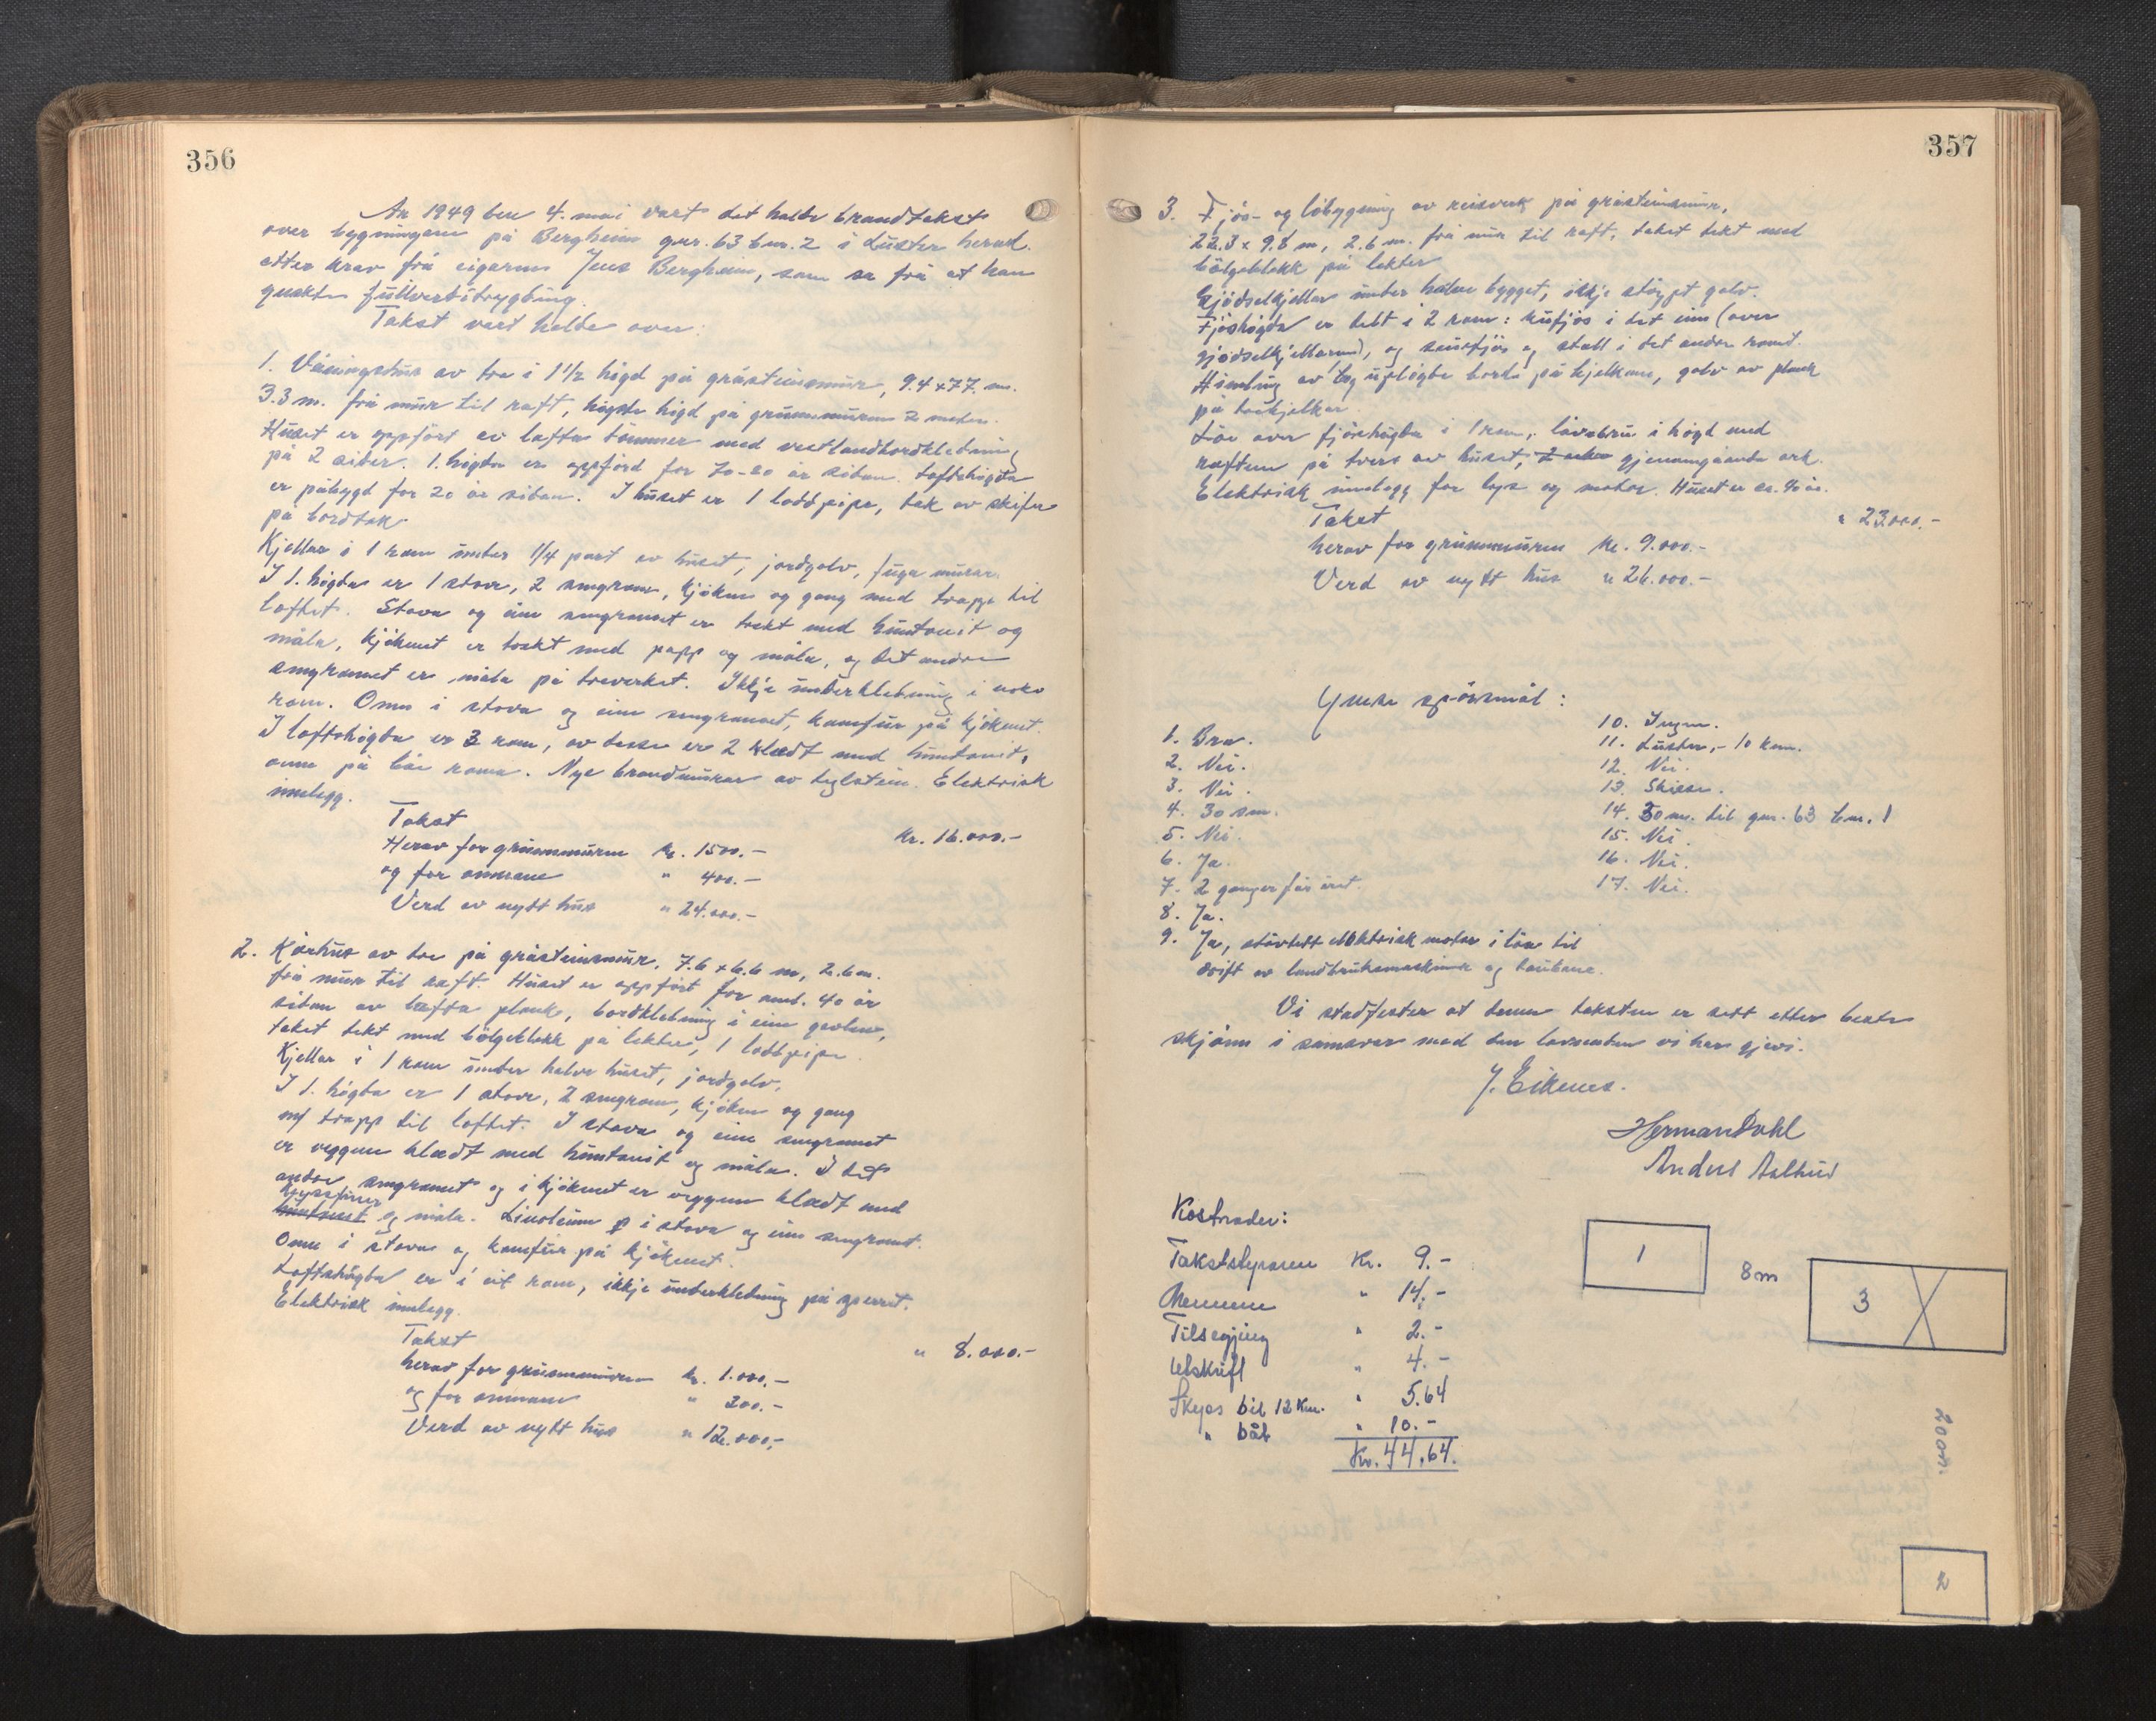 356
År 1949 den 4. mai vart det halde brandtakst
over bygningane på Bergheim gnr. 63 bnr. 2 i Luster herad
etter krav frå eigaren Jens Bergheim, som sa frå at han
ynskte fullverditrygding.
Takst vart halde over:
1. Våningshus av tre i 1 1/2 högd på gråsteinsmur, 9.4 x 7.7. m.
3.3 m. frå mur til raft, högste högd på grunnmuren 2 meter.
Huset er oppfört av lafta tömmer med vestlandbordkledning
på 2 sider. 1. högda er oppförd for 70-80 år sidan. Loftshögda
er påbygd for 20 år sidan. I huset er 1 loddpipe, tak av skifer
på bordtak.
Kjellar i 1 rom under 1/4 part av huset, jordgolv, fuga murar.
I 1. högda er 1 stove, 2 sengrom, kjöken og gang med trapp til
loftet. Stova og eine sengromet er trekt med huntonit og
måla, kjökenet er trekt med papp og måla, og det andre
sengromet er måla på treverket. Ikkje underkledning i noko
rom. Omn i stova og eine sengromet, komfur på kjökenet.
I loftshögda er 3 rom, av desse er 2 kledt med huntonit,
omn på båe roma. Nye brandmurar av teglstein. Elektrisk
innlegg.
Takst kr. 16.000.-
Herav for grunnmuren kr. 1500.-
og for omnane " 400.-
Verd av nytt hus " 24.000.-
2. Kårhus av tre på gråsteinsmur, 7.6 x 6.6 m, 2.6 m.
frå mur til raft. Huset er oppfört for omd. 40 år
sidan av lafta plank, bordkledning i eine gavlen,
taket tekt med bölgeblekk på lekter, 1 loddpipe.
Kjellar i 1 rom under halve huset, jordgolv.
I 1. högda er 1 stove, 2 sengrom, kjöken og gang
m/ trapp til loftet. I stova og eine sengromet
er veggene kledt med huntonit og måla. I det
andre sengromet og i kjökenet er veggene kledt med
kryssfiner
huntonit og måla. Linoleum p i stova og eine sengromet.
Omn i stova og komfur på kjökenet.
Loftshögda er i eit rom, ikkje underkledning på sperret.
Elektrisk innlegg.
Takst " 8.000.-
herav for grunnmuren kr. 1.000.-
og for omnane " 200.-
Verd av nytt hus " 12.000.-
357
3. Fjös- og löbygning av reisverk på gråsteinsmur,
22.3 x 9.8 m, 2.6 m. frå mur til raft, taket tekt med
bölgeblekk på lekter
Gjödselkjellar under halve bygget, ikkje stöypt golv.
Fjöshögda er delt i 2 rom: kufjös i det eine (over
gjödselkjellaren), og sauefjös og stall i det andre romet.
Himling av lag uplögde bord på bjelkane, golv av plank
på trebjelkar.
Löe over fjöshögda i 1 rom, låvebru i högd med
raftene på tvers av huset, 2 arker gjenomgåande ark.
Elektrisk innlegg for lys og motor. Huset er ca. 40 år.
Takst " 23.000.-
herav for grunnmuren kr. 9.000.-
Verd av nytt hus " 26.000.-
Ymse spörsmål:
1. Bra.
2. Nei.
3. Nei.
4. 30 sm.
5. Nei.
6. Ja.
7. 2 ganger for året.
8. Ja.
9. Ja, stövtett elektrisk motor i löa til
drift av landbruksmaskiner og taubane.
10. Ingen.
11. Luster, - 10 km.
12. Nei.
13. Skisse.
14. 30 m. til gnr. 63 bnr. 1
15. Nei.
16. Nei.
17. Nei.
Vi stadfester at denne taksten er sett etter beste
skjönn i samsvar med den lovnaden vi har gjevi.
J. Eikenes.
Herman Dahl
Anders Aalhud
Kostnader:
Takststyraren Kr. 9.-
Mennene " 14.-
Tilsegjing " 2.-
Utskrift " 4.-
Skyss bil 12 Km. " 5.64
" båt " 10.-
Kr. 44.64.
1
8 m
3
200 m.
2